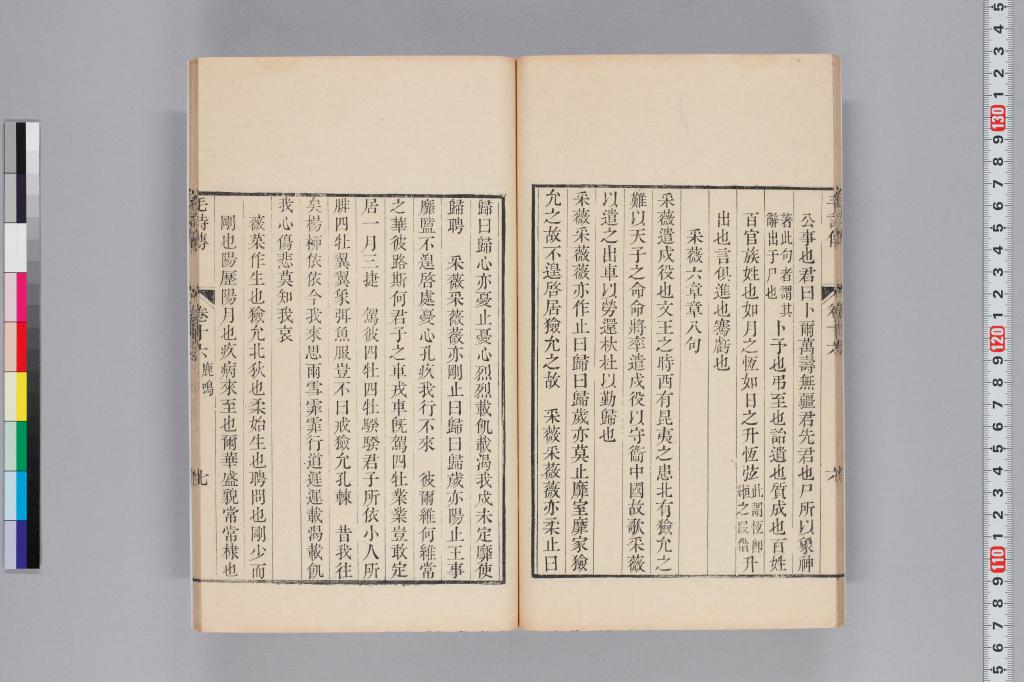 公事也君曰卜爾萬壽無疆君先君也尸所以象神
著此句者謂其
辭出于尸也
卜予也弔至也詒遺也質成也百姓
百官族姓也如月之恆如日之升恆弦
此謂恆卽
緪之叚借
升
出也言俱進也騫虧也
采薇六章章八句
采薇遣戍役也文王之時西有昆夷之患北有獫允之
難以天子之命命將率遣戍役以守衞中國故歌采薇
以遣之出車以勞還杕杜以勤歸也
采薇采薇薇亦作止曰歸曰歸歲亦莫止靡室靡家獫
允之故不遑啓居獫允之故　采薇采薇薇亦柔止曰
歸曰歸心亦憂止憂心烈烈載飢載渴我戍未定靡使
歸聘　采薇采薇薇亦剛止曰歸曰歸歲亦陽止王事
靡盬不遑啓處憂心孔疚我行不來　彼爾維何維常
之華彼路斯何君子之車戎車旣駕四牡業業豈敢定
居一月三捷　駕彼四牡四牡騤騤君子所依小人所
腓四牡翼翼象弭魚服豈不日戒獫允孔棘　昔我往
矣楊柳依依今我來思雨雪霏霏行道遲遲載渴載飢
我心傷悲莫知我哀
薇菜作生也獫允北狄也柔始生也聘問也剛少而
剛也陽歷陽月也疚病來至也爾華盛貌常常棣也
毛詩傳
卷十六
鹿鳴
七